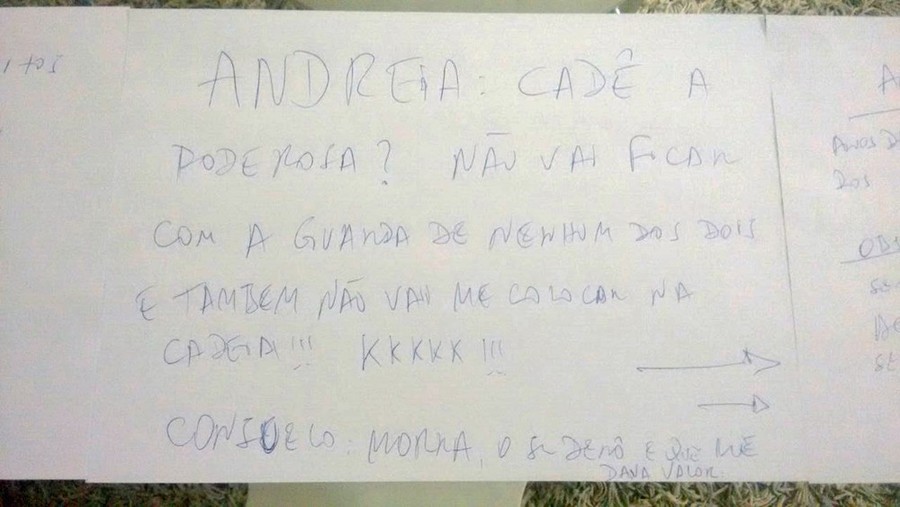 ANDREIA: CADÊ A
PODEROSA? NÃO VAI FICAR
COM A GUARDA DE NENHUM DOS DOIS
E TAMBEM NÃO VAI ME COLOCAR NA
CADEIA!!! KKKKK!!!
CONSUELO: MORRA, O SR DERÔ E QUE ME
DAVA VALOR.
ANOS D
DOS
OBS